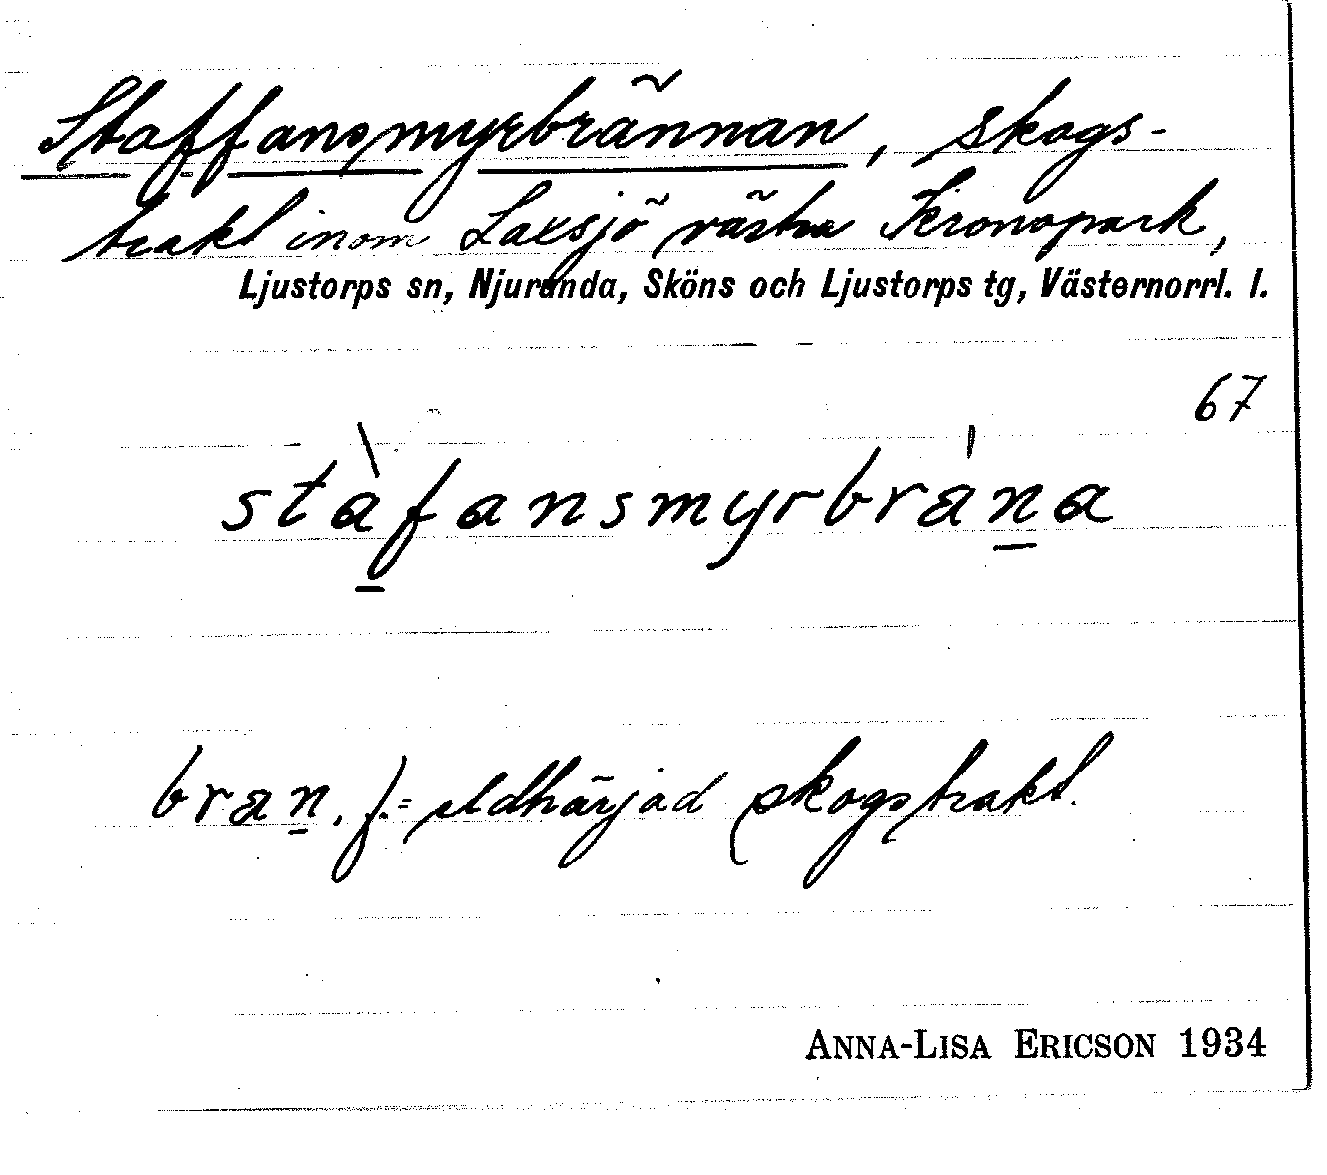 Staffansmyrbrännan, skogs-
trakt inom Laxsjö västra Kronopark,
Ljustorps sn, Njurunda, Sköns och Ljustorps tg, Västernorrl. l.
67
stàf̲ansmyrbrán̲a
bran̲. f. = eldhärjad skogstrakt.
ANNA-LISA ERICSON 1934